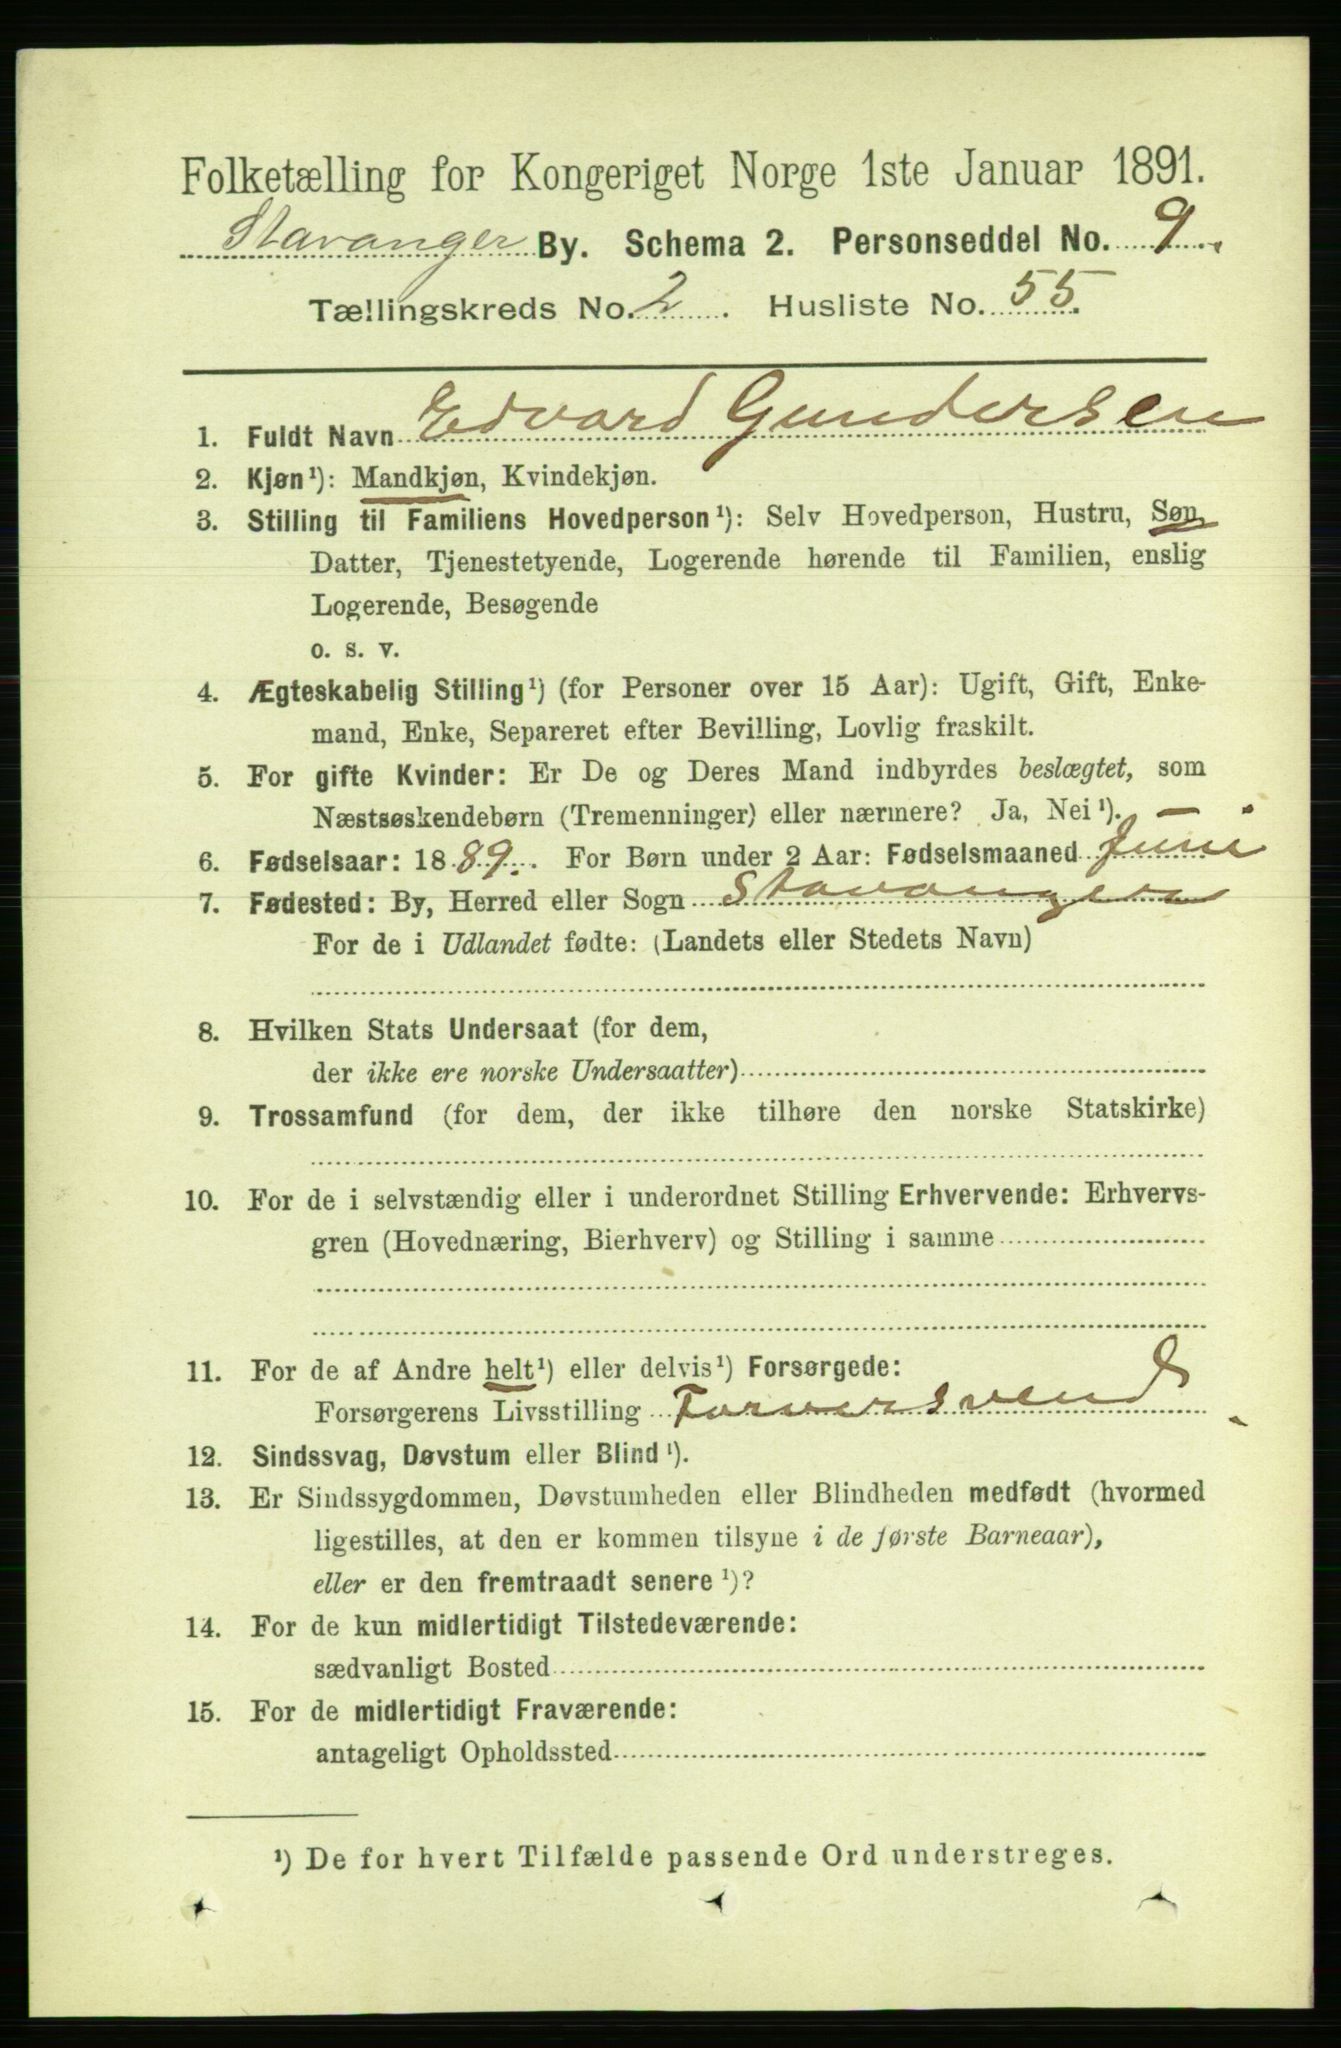 Folketælling for Kongeriget Norge 1ste Januar 1891.
Stavanger By. Schema 2. Personseddel No. 9.
Tællingskreds No. 2. Husliste No. 55.
1. Fuldt Navn Edvard Gundersen
2. Kjøn¹): Mandkjøn, Kvindekjøn.
3. Stilling til Familiens Hovedperson¹): Selv Hovedperson, Hustru, Søn,
Datter, Tjenestetyende, Logerende hørende til Familien, enslig
Logerende, Besøgende
o. s. v.
4. Ægteskabelig Stilling¹) (for Personer over 15 Aar): Ugift, Gift, Enke-
mand, Enke, Separeret efter Bevilling, Lovlig fraskilt.
5. For gifte Kvinder: Er De og Deres Mand indbyrdes beslægtet, som
Næstsøskendebørn (Tremenninger) eller nærmere? Ja, Nei¹).
6. Fødselsaar: 1889. For Børn under 2 Aar: Fødselsmaaned Juni
7. Fødested: By, Herred eller Sogn Stavanger
For de i Udlandet fødte: (Landets eller Stedets Navn)
8. Hvilken Stats Undersaat (for dem,
der ikke ere norske Undersaatter)
9. Trossamfund (for dem, der ikke tilhøre den norske Statskirke)
10. For de i selvstændig eller i underordnet Stilling Erhvervende: Erhvervs-
gren (Hovednæring, Bierhverv) og Stilling i samme
11. For de af Andre helt¹) eller delvis¹) Forsørgede:
Forsørgerens Livsstilling Farversvend
12. Sindssvag, Døvstum eller Blind¹).
13. Er Sindssygdommen, Døvstumheden eller Blindheden medfødt (hvormed
ligestilles, at den er kommen tilsyne i de første Barneaar),
eller er den fremtraadt senere¹)?
14. For de kun midlertidigt Tilstedeværende:
sædvanligt Bosted
15. For de midlertidigt Fraværende:
antageligt Opholdssted
¹) De for hvert Tilfælde passende Ord understreges.